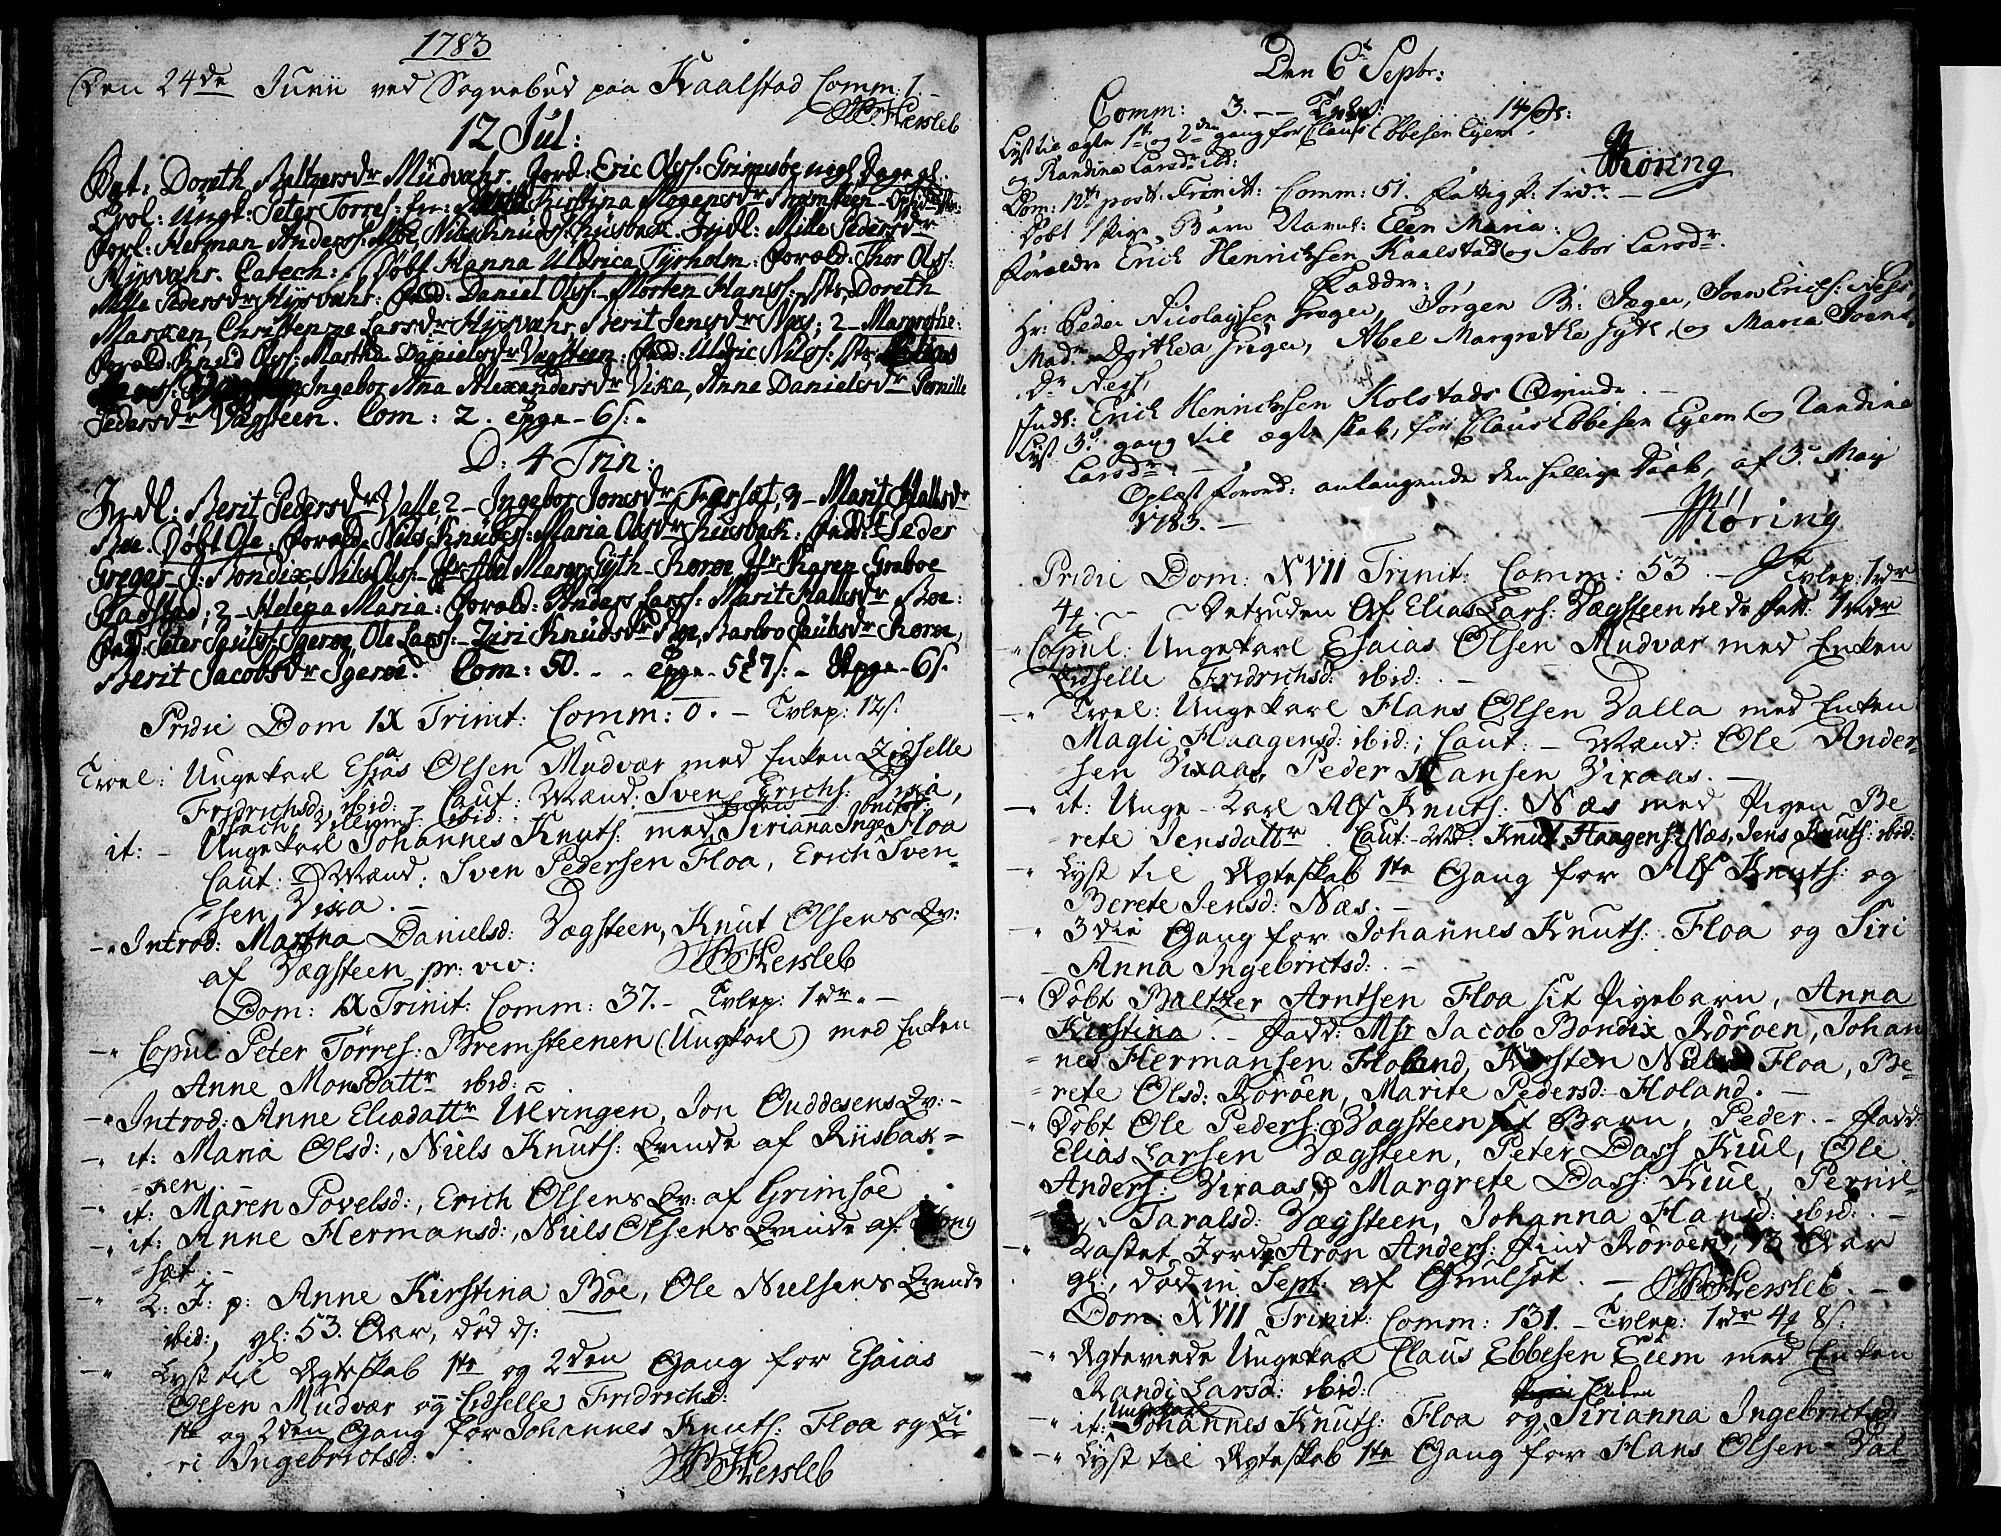 1783
Den 24de Junii ved Sognebud paa Kaalstad Comm: 1.
Hersleb
12 Jul:
Bat: Doreth Baltzersdr Mudvær. Jord: Eric Olss: Grimsøe
Trol: Ungk: Peter Torres: Kirstina Mogensdr Bremsteen
Forl: Herman Anderss: Niels Knuds: Rusbak. Indl: Mille Pedersdr
Hysvær. Catech: Døbt Hanna Uldrica Tyrholm: Foræld: Thor Olss:
Mille Pedersdr Hysvær: Fadd: Daniel Olss: Morten Hanss: Doreth
Maren Christenza Larsdr Hysvær, Berit Jensdr Næs; 2 - Margrethe:
Foræld: Knud Olss: Martha Danielsdr Vægsteen: Fadd: Uldric Nilss:
Ingebor Ana Alexandersdr Vixa, Anna Danielsdr Pernille
Pedersdr Vægsteen. Com: 2. 6 s:
D: 4 Trin:
Indl: Berit Pedersdr Valle, 2 - Ingebor Jonesdr Forsæt, 3 - Marit Hallsdr
Boe. Døbt Ole: Foræld: Nils Knudss: Maria Olsdr Rusbak: Fadd: Peder
Greger - J: Bondix, Jfr Abel Margr: Gyth - Rorøe Jfr Karen Graboe
2 - Helena Maria: Foræld: Anders Larss: Marit Hallsdr Boe:
Fadd: Peter Igerøe, Ole Larss: Ziri Knudsdr Boe, Barbro Rorøe,
Berit Jacobsdr Igerøe. Com: 50.
Pridie Dom IX Trinit: Comm: 0. - Tvlep: 12 s.
Troel: Ungekarl Esias Olsen Mudvær med Enken Zidselle
Fridrichsd: ibid: - Caut: Mænd: Sven Erichs: Vixa,
it: - Ungekarl Johannes Knuts: med Enken Sirianna Inge- Floa
Caut: Mænd: Sven Pedersen Floa, Erich Sven-
=sen Vixa. -
Introd: Martha Danielsd: Vægsteen, Knut Olsens Qv:
af Vægsteen pr: viv: Hersleb
Dom: IX Trinit: Comm: 37. - Tvlep: 1 rdr. -
Copul: Peter Törres: Bremsteenen (Ungkarl) med Enken
Anne Monsdattr ibid: -
Introd: Anne Eliædattr Ulvingen, Jon Ouddesens Qv: -
it: Maria Olsd:, Niels Knuts: Qvinde af Riisbak=
=ken. -
it: Maren Povelsd:, Erich Olsens Qv: af Grimsøe
it: Anne Hermansd:, Niels Olsens Qvinde af Kong
=sæt. -
K: J: p: Anne Kirstina Böe, Ole Nielsens Qvinde
ibid:, gl: 53. Aar, død
Lyst til Ægteskab 1te og 2den Gang for Esaias
Olsen Mudvær og Zidselle Fridrichsd:
1te og 2den Gang for Johannes Knuts: Floa og Si-
ri Ingebrictsd:
Hersleb
Den 6te Septbr:
Comm: 3. - - 14 s:
Lyst til ægte 1te og 2den gang for Claus Ebbesen Eyem
og Randina Larsdr ibid:
Röring
Dom: 12te post: Trinit: Comm: 51. Fattig p: 1 rdr. -
Döbt 1 Pige Barn Navnl: Elen Maria:
Foreldre Erick Henrichsen Kaalstad og Sebor Larsdr.
Faddere:
Hr: Peder Nicolaysen Greger, Jörgen B: Jæger, Joen Erichs: Ness,
Mad: Dorthea Greger, Abel Margrethe Gyth, og Maria Joens
dr Ness,
Indl: Erick Henrichsen Kolstads Qvinde. -
Lyst 3de gang til ægteskab, for Claus Ebbesen Eyem og Randine
Larsdr. -
Oplæst Forord: anlangende den hellige Daab, af 3de May
1783. - Röring
Pridie Dom: XVII Trinit: Comm: 53. - Tvlep: 1 rdr
Af Elias Lars: Vægsteen
Copul: Ungekarl Esaias Olsen Mudvær med Enken
Zidselle Fridrichsd: ibid: -
Troel: Ungekarl Hans Olsen Valla med Enken
Magli Haagensd: ibid:; Caut: - Mænd: Ole Ander-
sen Vixaas, Peder Hansen Vixaas. -
it: Unge-Karl Alf Knuts: Næs med Pigen Be
rete Jensdattr. Caut: Md: Knut Haagens: Næs, Jens Knuts: ibid:
Lyst til Ægteskab 1te Gang for Alf Knuts: og
Berete Jensd: Næs. -
3die Gang for Johannes Knuts: Floa og Siri
Anna Ingebrictsd:. -
Döbt Baltzer Arntsen Floa sit Pigebarn, Anna
Kirstina. - Fadd: Msr Jacob Bondix Röröen, Johan
nes Hermansen Holand, Kirsten Floa, Be-
rete Olsd: Röröen, Marite Pedersd: Holand. -
Döbt Ole Peders: Vægsteen sit Barn, Peder. - Fadd:
Elias Larsen Vægsteen, Peter Dass Kiul, Ole
Anders: Vixaas, Margrete Dass: Kiul, Pernil-
Taralsd: Vægsteen, Johanna Hansd: ibid:. -
Kastet Jord p: Aron Anders: Find Röröen, 13 Aar
gl:, död in Sept: af Guulsot. - Hersleb. -
Dom: XVII Trinit: Comm: 131. - Tvlep: 1 rdr 4 8 s.
Ægteviede Ungekarl Claus Ebbesen Eiem med Enken
Randi Larsd: ibid:
it: Ungekarl Johannes Knuts: Floa og Enken Sirianna Ingebrictsd:
Lyst til Ægteskab 1te Gang for Hans Olsen Val-